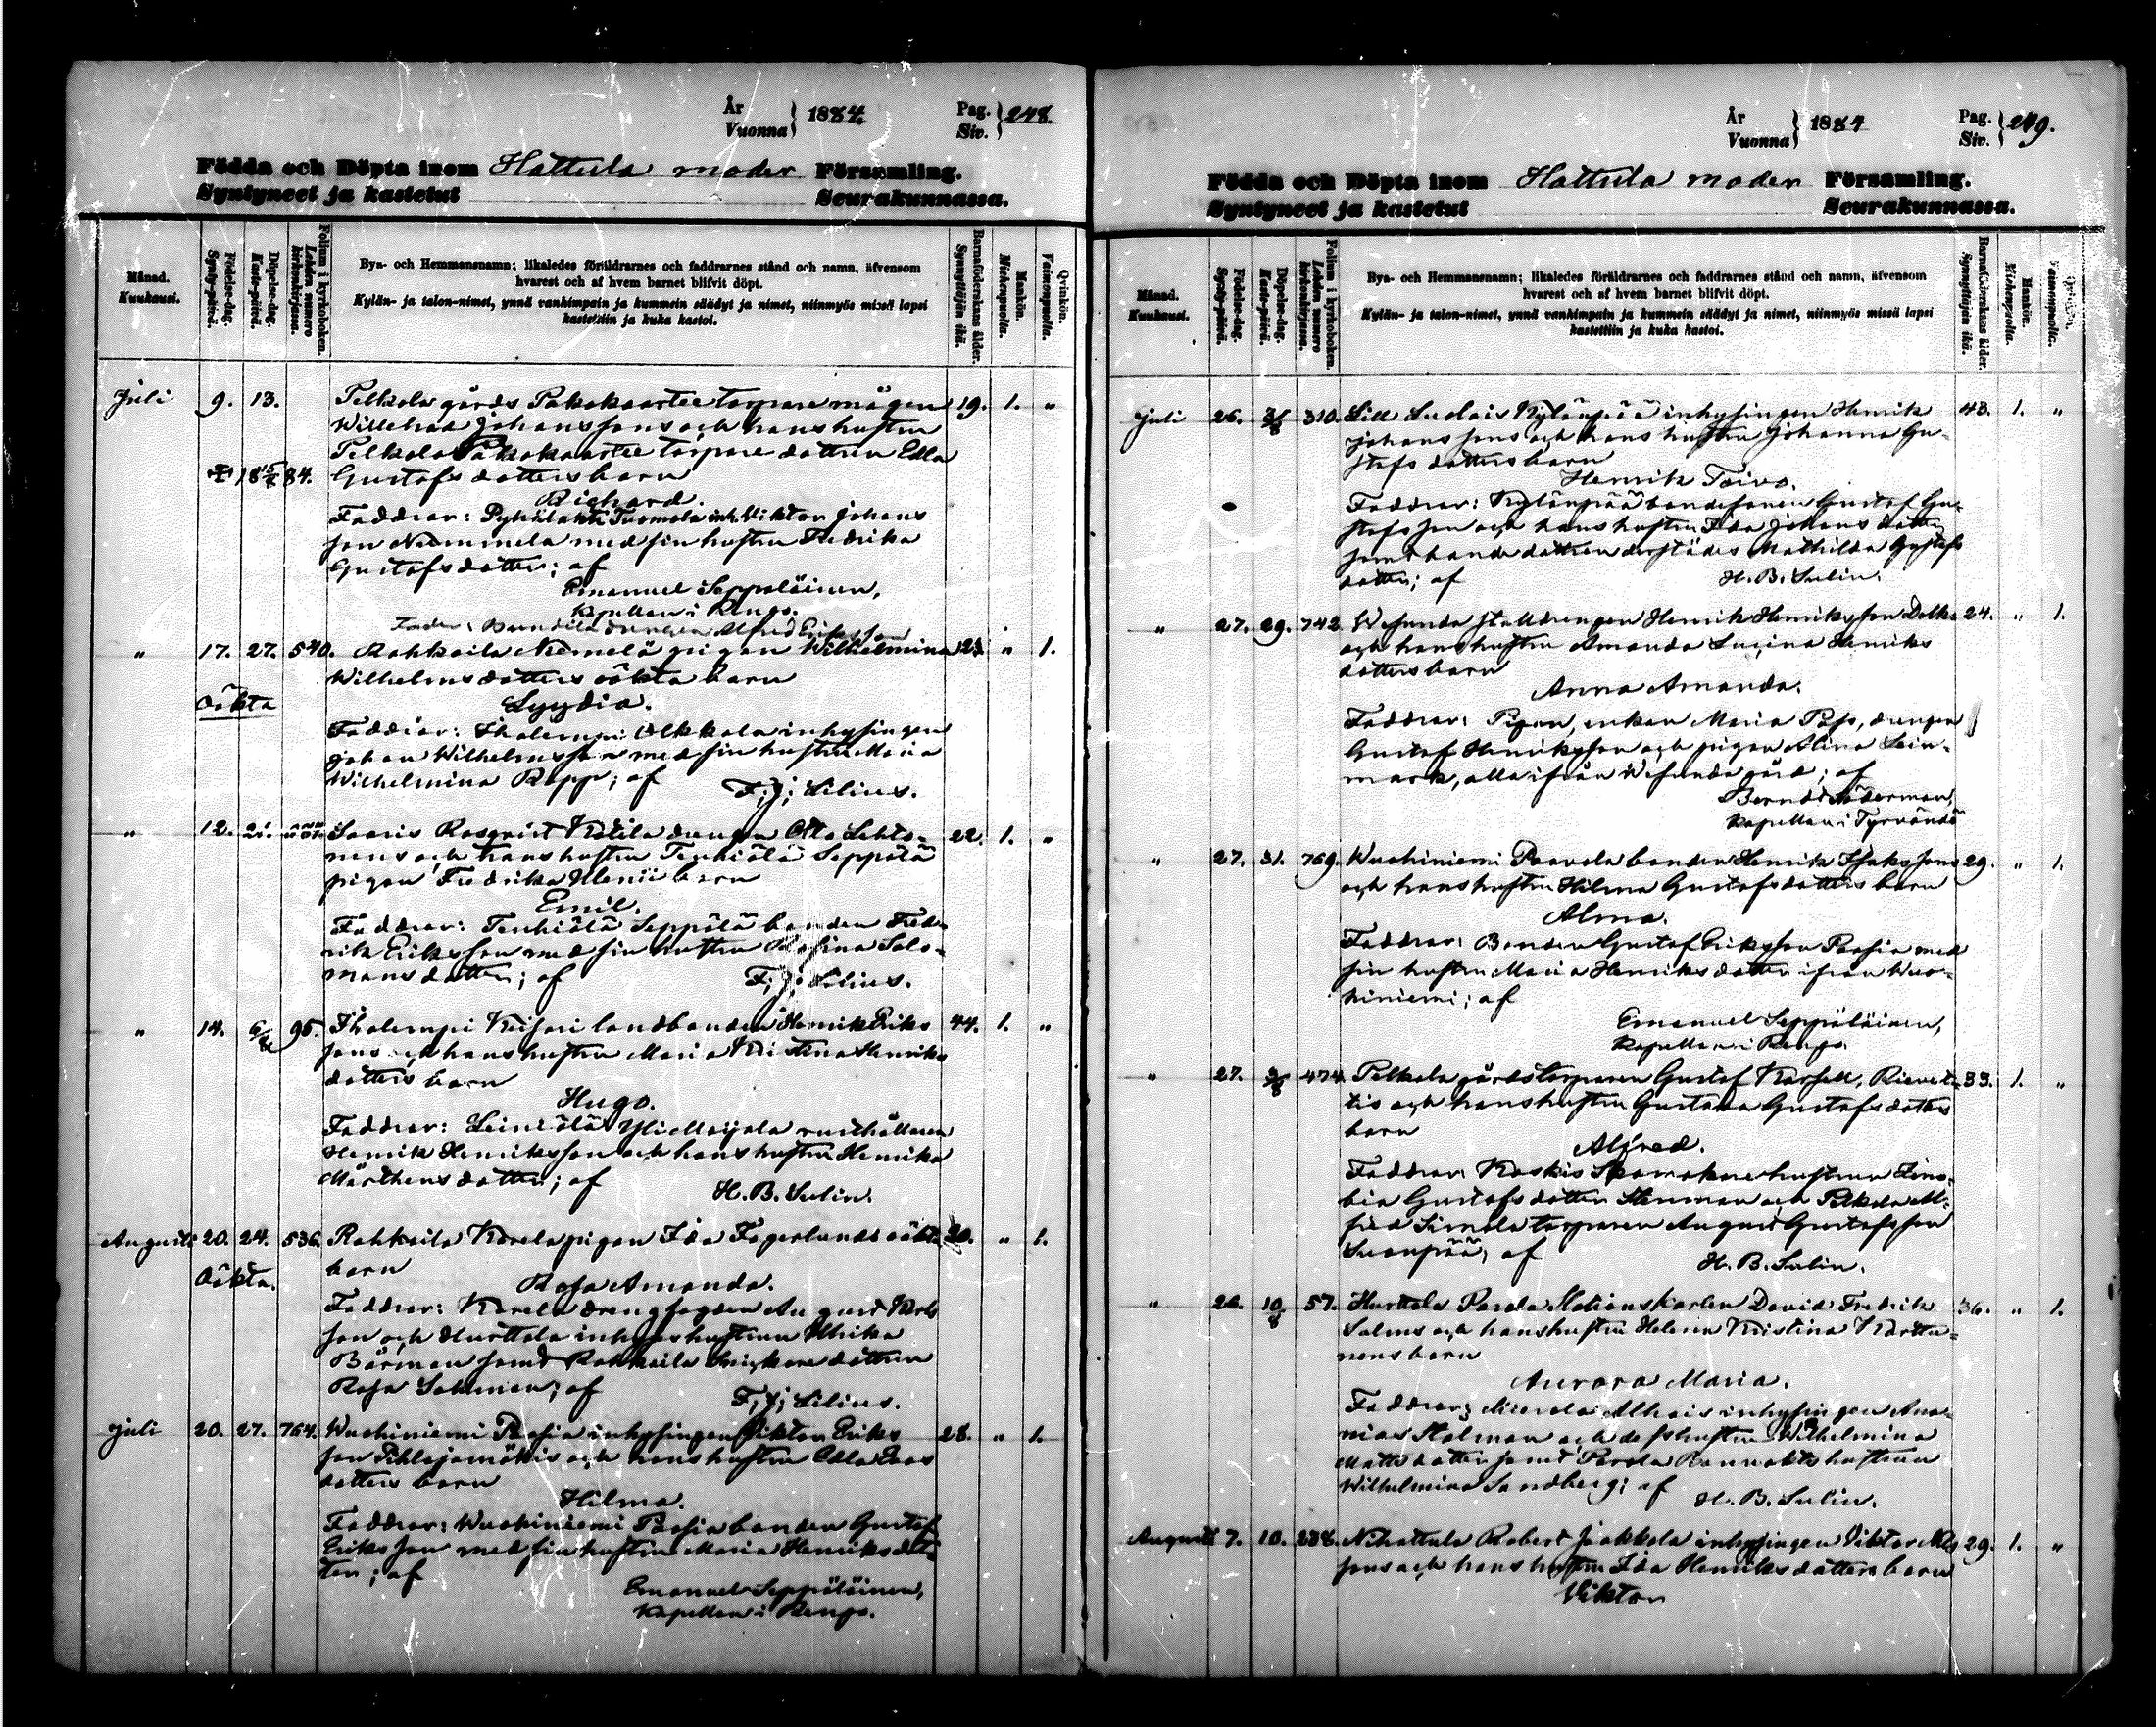 År
Vuonna } 1884.
Pag.
Siv. } 248.
Födda och Döpta inom Hattula moder Församling.
Syntyneet ja kastetut Seurakunnassa.
Månad.
Kuukausi.
Födelse-dag.
Synty-päivä.
Döpelse-dag.
Kaste-päivä.
Folium i kyrkoboken.
Lehden numero kirkonkirjassa.
Bya- och Hemmansnamn; likaledes föräldrarnes och faddrarnes stånd och namn, äfvensom
hvarest och af hvem barnet blifvit döpt.
Kylän- ja talon-nimet, ynnä vanhimpain ja kummein säädyt ja nimet, niinmyös missä lapsi
kastettiin ja kuka kastoi.
Barnaföderskans ålder.
Synnyttäjän ikä.
Mankön.
Miehenpuolta.
Qvinkön.
Vaimonpuolta.
Juli 9. 13. Pelkola gårds Pakokaartee torpare mågen 19. 1. "
Willehad Johanssons och hans hustru
Pelkola Pakokaartee torpare dottren Edla
Gustafsdotters barn
Richard.
Faddrar: Tuomola inh. Viktor Johans
son Nummela med sin hustru Fredrika
Gustafsdotter; af
Emanuel Seppäläinen,
Kapellan i Rengo.
Fader: drengen Alfred Eriksson
" 17. 27. 540. Rahkoila Niemelä pigan Wilhelmina " 1.
Wilhelmsdotters oäkta barn
oäkta
Lyydia.
Faddrar: Ihalempi Alkkola inhysingen
Johan Wilhelmsson med sin hustru Maria
Wilhelmina Rapp; af
F. J. Lilius.
" 12. 21. Saaris Rosqvist Kotila drengen Otto Lehto-
nens och hans hustru Tenhiälä Seppälä 22. 1. "
pigan Fredrika Ulenii barn
Emil.
Faddrar: Tenhiälä Seppälä bonden Fred-
rik Eriksson med sin hustru Rosina Salo-
monsdotter; af
F. J. Lilius.
" 14. 95. Ihalempi Keisari landbonden Henrik Eriks 44. 1. "
sons och hans hustru Maria Kristina Henriks
dotters barn
Hugo.
Faddrar: Leiniälä Yli Maijala rusthållaren
Henrik Henriksson och hans hustru Henrika
Mårthensdotter; af
H. B. Sulin.
Augusti 20. 24. 536. Rahkoila Karela pigan Ida Fagerlunds oäkta 20. " 1.
barn
Oäkta.
Rosa Amanda.
Faddrar: Karela drengfogden August Karls
son och Hurttala inhyses hustrun Ulrika
Bärman samt Rahkoila Snickare dottren
Rosa Salman; af
F. J. Lilius.
Juli 20. 27. 764. Wuohiniemi Paasia inhysingen Viktor Eriks 28. " 1.
son Pihlajamäkis och hans hustru Edla Evas
dotters barn
Hilma.
Faddrar: Wuohiniemi Paasia bonden Gustaf
Eriksson med sin hustru Maria Henriksdot-
ter; af
Emanuel Seppäläinen,
Kapellan i Rengo.
År
Vuonna } 1884
Pag.
Siv. } 249.
Födda och Döpta inom Hattula moder Församling.
Syntyneet ja kastetut Seurakunnassa.
Månad.
Kuukausi.
Födelse-dag.
Synty-päivä.
Döpelse-dag.
Kaste-päivä.
Folium i kyrkoboken.
Lehden numero kirkonkirjassa.
Bya- och Hemmansnamn; likaledes föräldrarnes och faddrarnes stånd och namn, äfvensom
hvarest och af hvem barnet blifvit döpt.
Kylän- ja talon-nimet, ynnä vanhimpain ja kummein säädyt ja nimet, niinmyös missä lapsi
kastettiin ja kuka kastoi.
Barnaföderskans ålder.
Synnyttäjän ikä.
Mankön.
Miehenpuolta.
Qvinkön.
Vaimonpuolta.
Juli 26. 3/8 310. Lill Luolais Kylänpää inhysingen Henrik 43. 1. "
Johanssons och hans hustru Johanna Gu-
stafsdotters barn
Henrik Toivo.
Faddrar: Kylänpää bondesonen Gustaf Gu-
stafsson och hans hustru Ida Johansdotter
samt bonde dottren derstädes Mathilda Gustafs
dotter; af H. B. Sulin.
" 27. 29. 742 Wesunda stalldrengen Henrik Henriksson 24. " 1.
och hans hustru Amanda Lucina Henriks
dotters barn
Anna Amanda.
Faddrar: Pigan, enkan Maria, drengen
Gustaf Henriksson och pigan Alina Lein-
mark, alla ifrån Wesunda gård; af
Berndt Söderman,
Kapellan i Tyrvändö
" 27. 31. 769. Wuohiniemi Paavola bonden Henrik Isaksson 29. " 1.
och hans hustru Hilma Gustafsdotters barn
Alma.
Faddrar: Bonden Gustaf Eriksson Paasia med
sin hustru Maria Henriksdotter ifrån Wuo-
hiniemi; af
Emanuel Seppäläinen,
Kapellan i Rengo.
" 27. 474. Pelkola gårds torparen Gustaf 33. 1. "
och hans hustru Gustava Gustafsdotters
barn
Alfred.
Faddrar: Koskis Skomakare hustrun
Gustafsdotter Stenman och Pelkola
Simola torparen August Gustafsson
Suonpää; af
H. B. Sulin.
" 26. 10/8 57. Hurttala Parola Stations karlen David Fredrik 36. " 1.
Salms och hans hustru Helena Kristina Karttu-
nens barn
Aurora Maria.
Faddrar: Mierola Alhais inhysingen Ana-
nias Stolman och dess hustru Wilhelmina
Mattsdotter samt Parola hustrun
Wilhelmina Sandberg; af
H. B. Sulin.
Augusti 7. 10. Nihattula Robert Jaakkola inhysingen Viktor Nils 29. 1. "
sons och hans hustru Ida Henriksdotters barn
Viktor